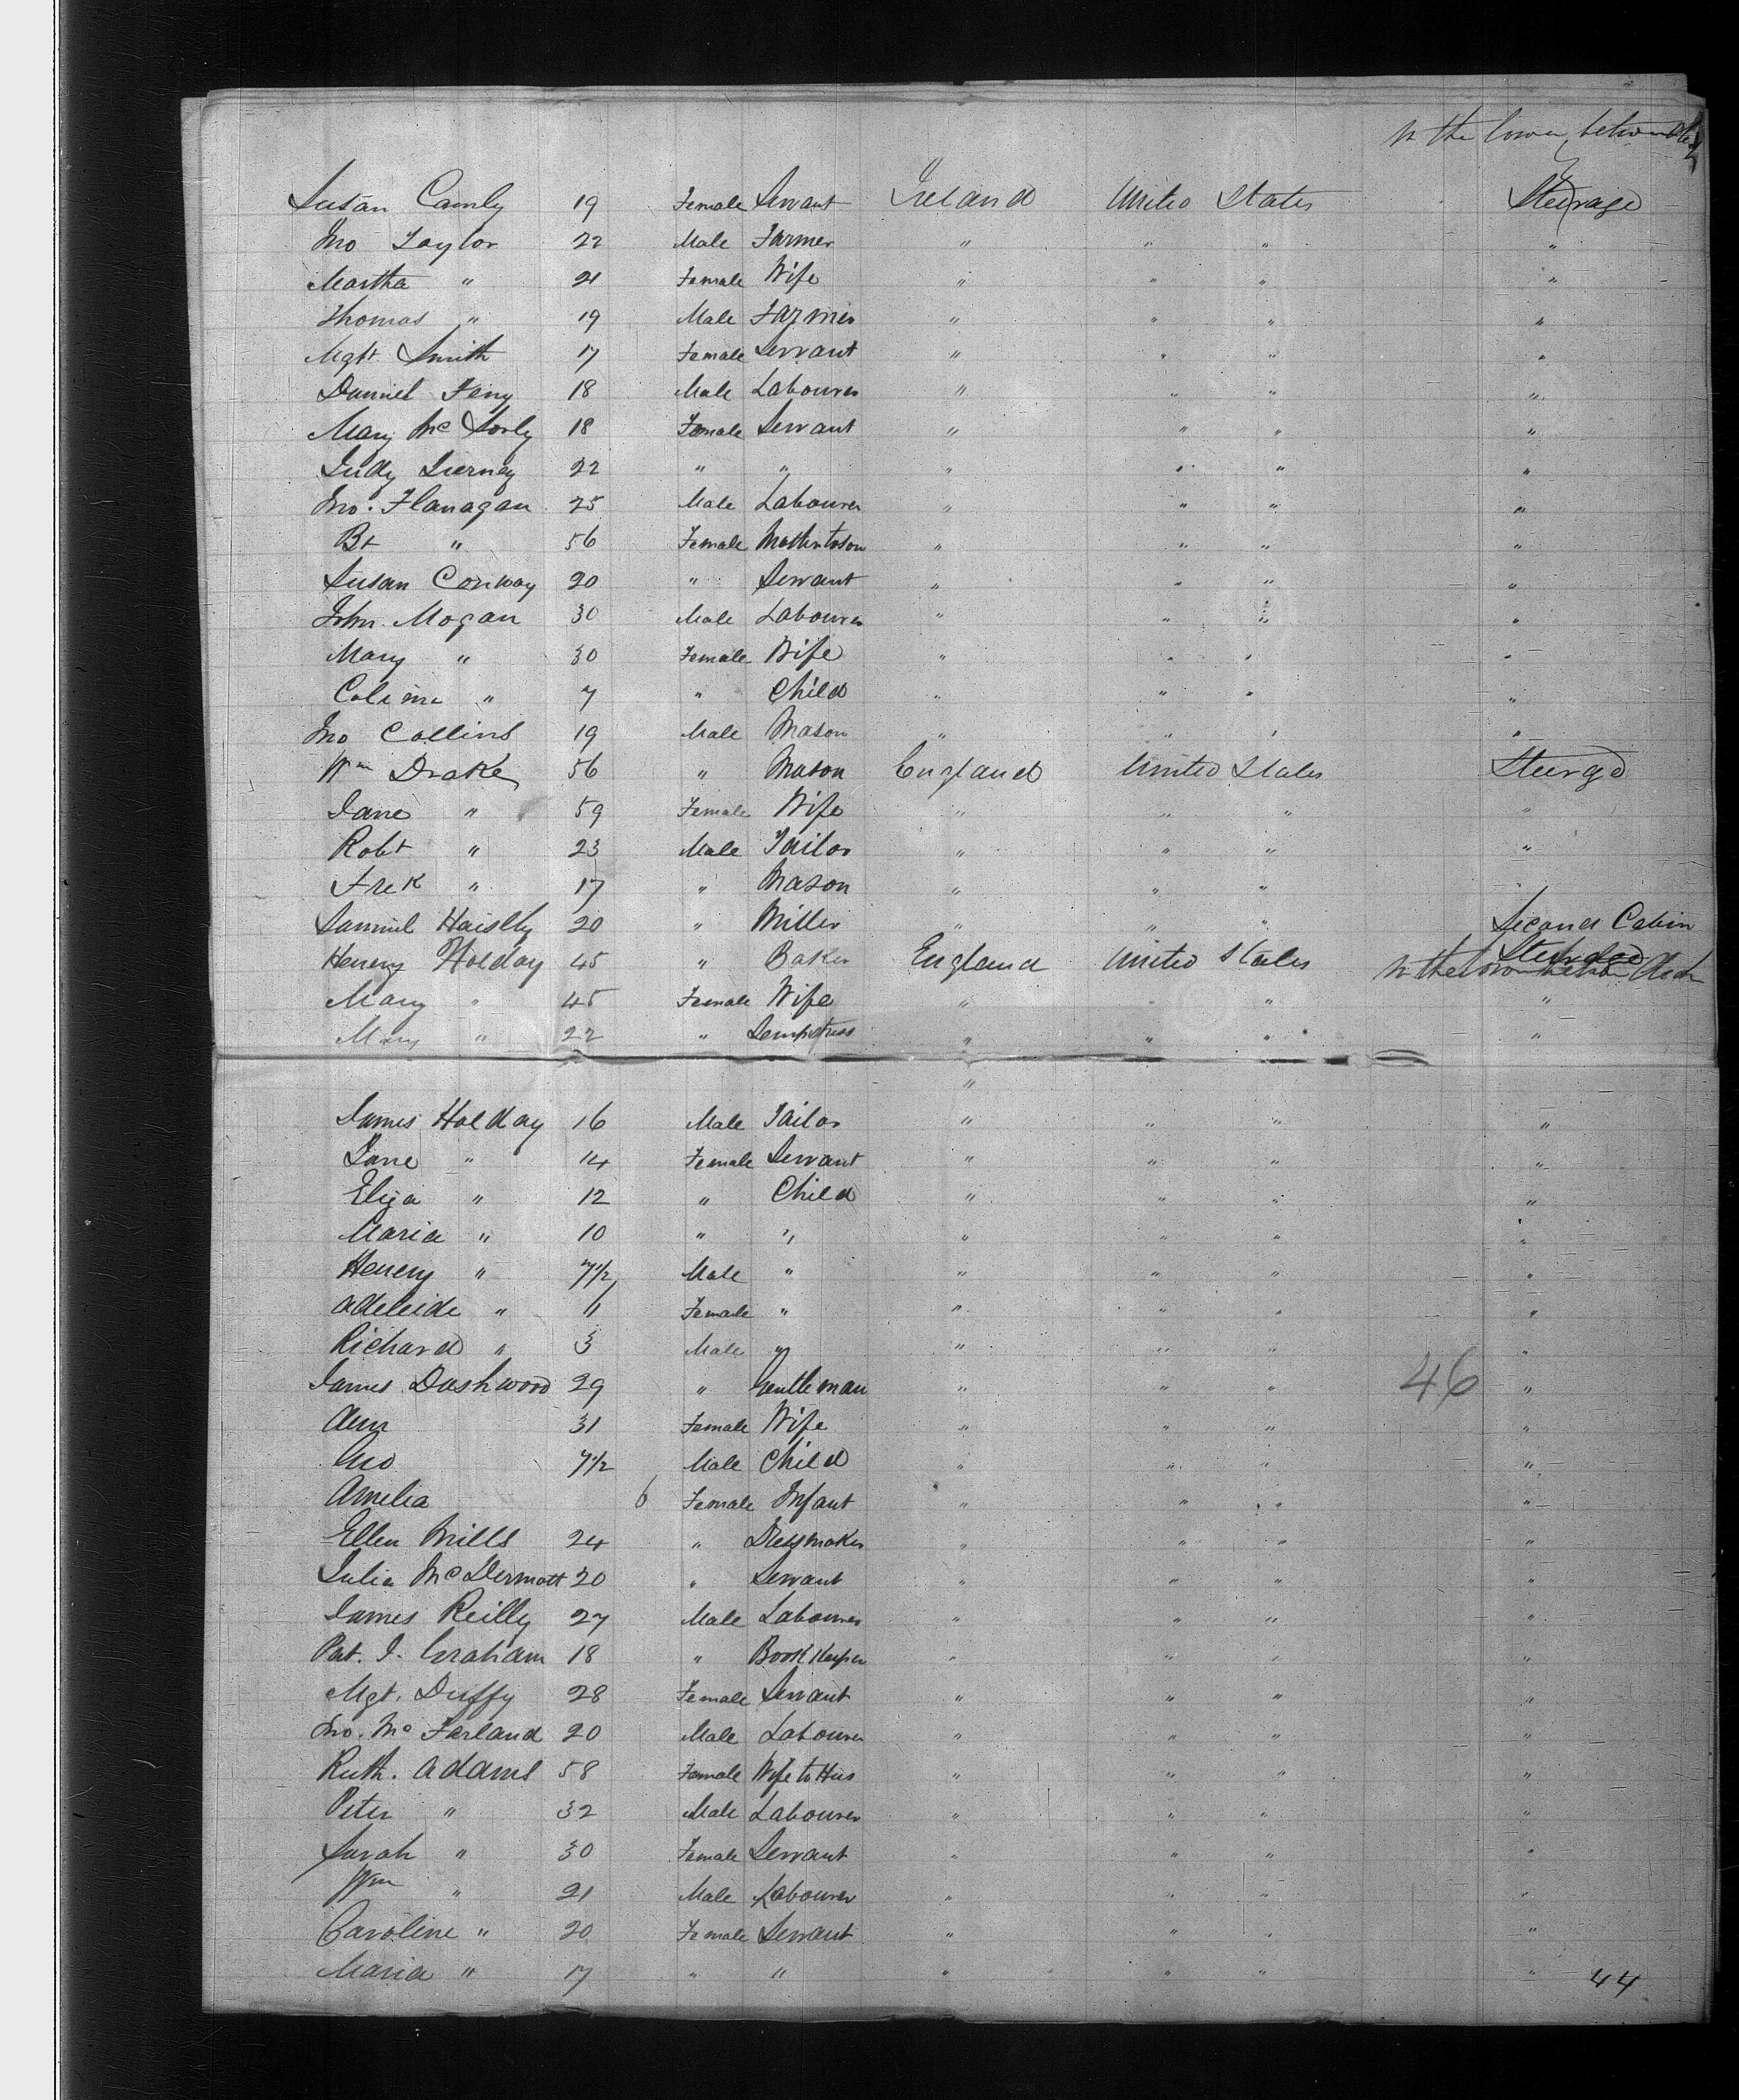 In the lower between decks
Susan Camly 19 Female Servant Ireland United States Steerage
Jno Taylor 22 Male Farmer " " " "
Martha " 21 Female Wife " " " "
Thomas " 19 Male Farmer " " " "
Mgt Smith 17 Female Servant " " " "
Daniel Feny 18 Male Labourer " " " "
Mary McSorly 18 Female Servant " " " "
Judy Tierney 22 " " " " " "
Jno. Flanagan 25 Male Labourer " " " "
Bt " 56 Female Mother to son " " " "
Susan Conway 20 " Servant " " " "
John Mogan 30 Male Labourer " " " "
Mary " 30 Female Wife " " " "
" 7 " Child " " " "
Jno Collins 19 Male Mason " " " "
Wm Drake 56 " Mason England United States Steerage
Jane " 59 Female Wife " " " "
Robt " 23 Male Tailor " " " "
Frek " 17 " Mason " " " "
Samuel 20 " Miller " " " Second Cabin
Henery Holday 45 " Baker England United States Steerage
In the lower between Deck
Mary " 45 Female Wife " " " "
Mary " 22 " Sempstress " " " "
"
James Holday 16 Male Tailor " " " "
Jane " 14 Female Servant " " " "
Eliza " 12 " Child " " " "
Maria " 10 " " " " " "
Henery " 7½ Male " " " " "
Adeleide " 11 Female " " " " "
Richard " 3 Male " " " " "
James Dashwood 29 " Gentleman " " " 46 "
Ann 31 Female Wife " " " "
Geo 7½ Male Child " " " "
Amelia 6 Female Infant " " " "
Ellen Mills 24 " Dressmaker " " " "
Julia McDermott 20 " Servant " " " "
James Reilly 27 Male Labourer " " " "
Pat. J. Graham 18 " Book Keeper " " " "
Mgt. Duffy 28 Female Servant " " " "
Jno. Mc Farland 20 Male Labourer " " " "
Ruth. Adams 58 Female Wife to Hus " " " "
Peter " 32 Male Labourer " " " "
Sarah " 30 Female Servant " " " "
Wm " 21 Male Labourer " " " "
Caroline " 20 Female Servant " " " "
Maria " 17 " " " " " " 44